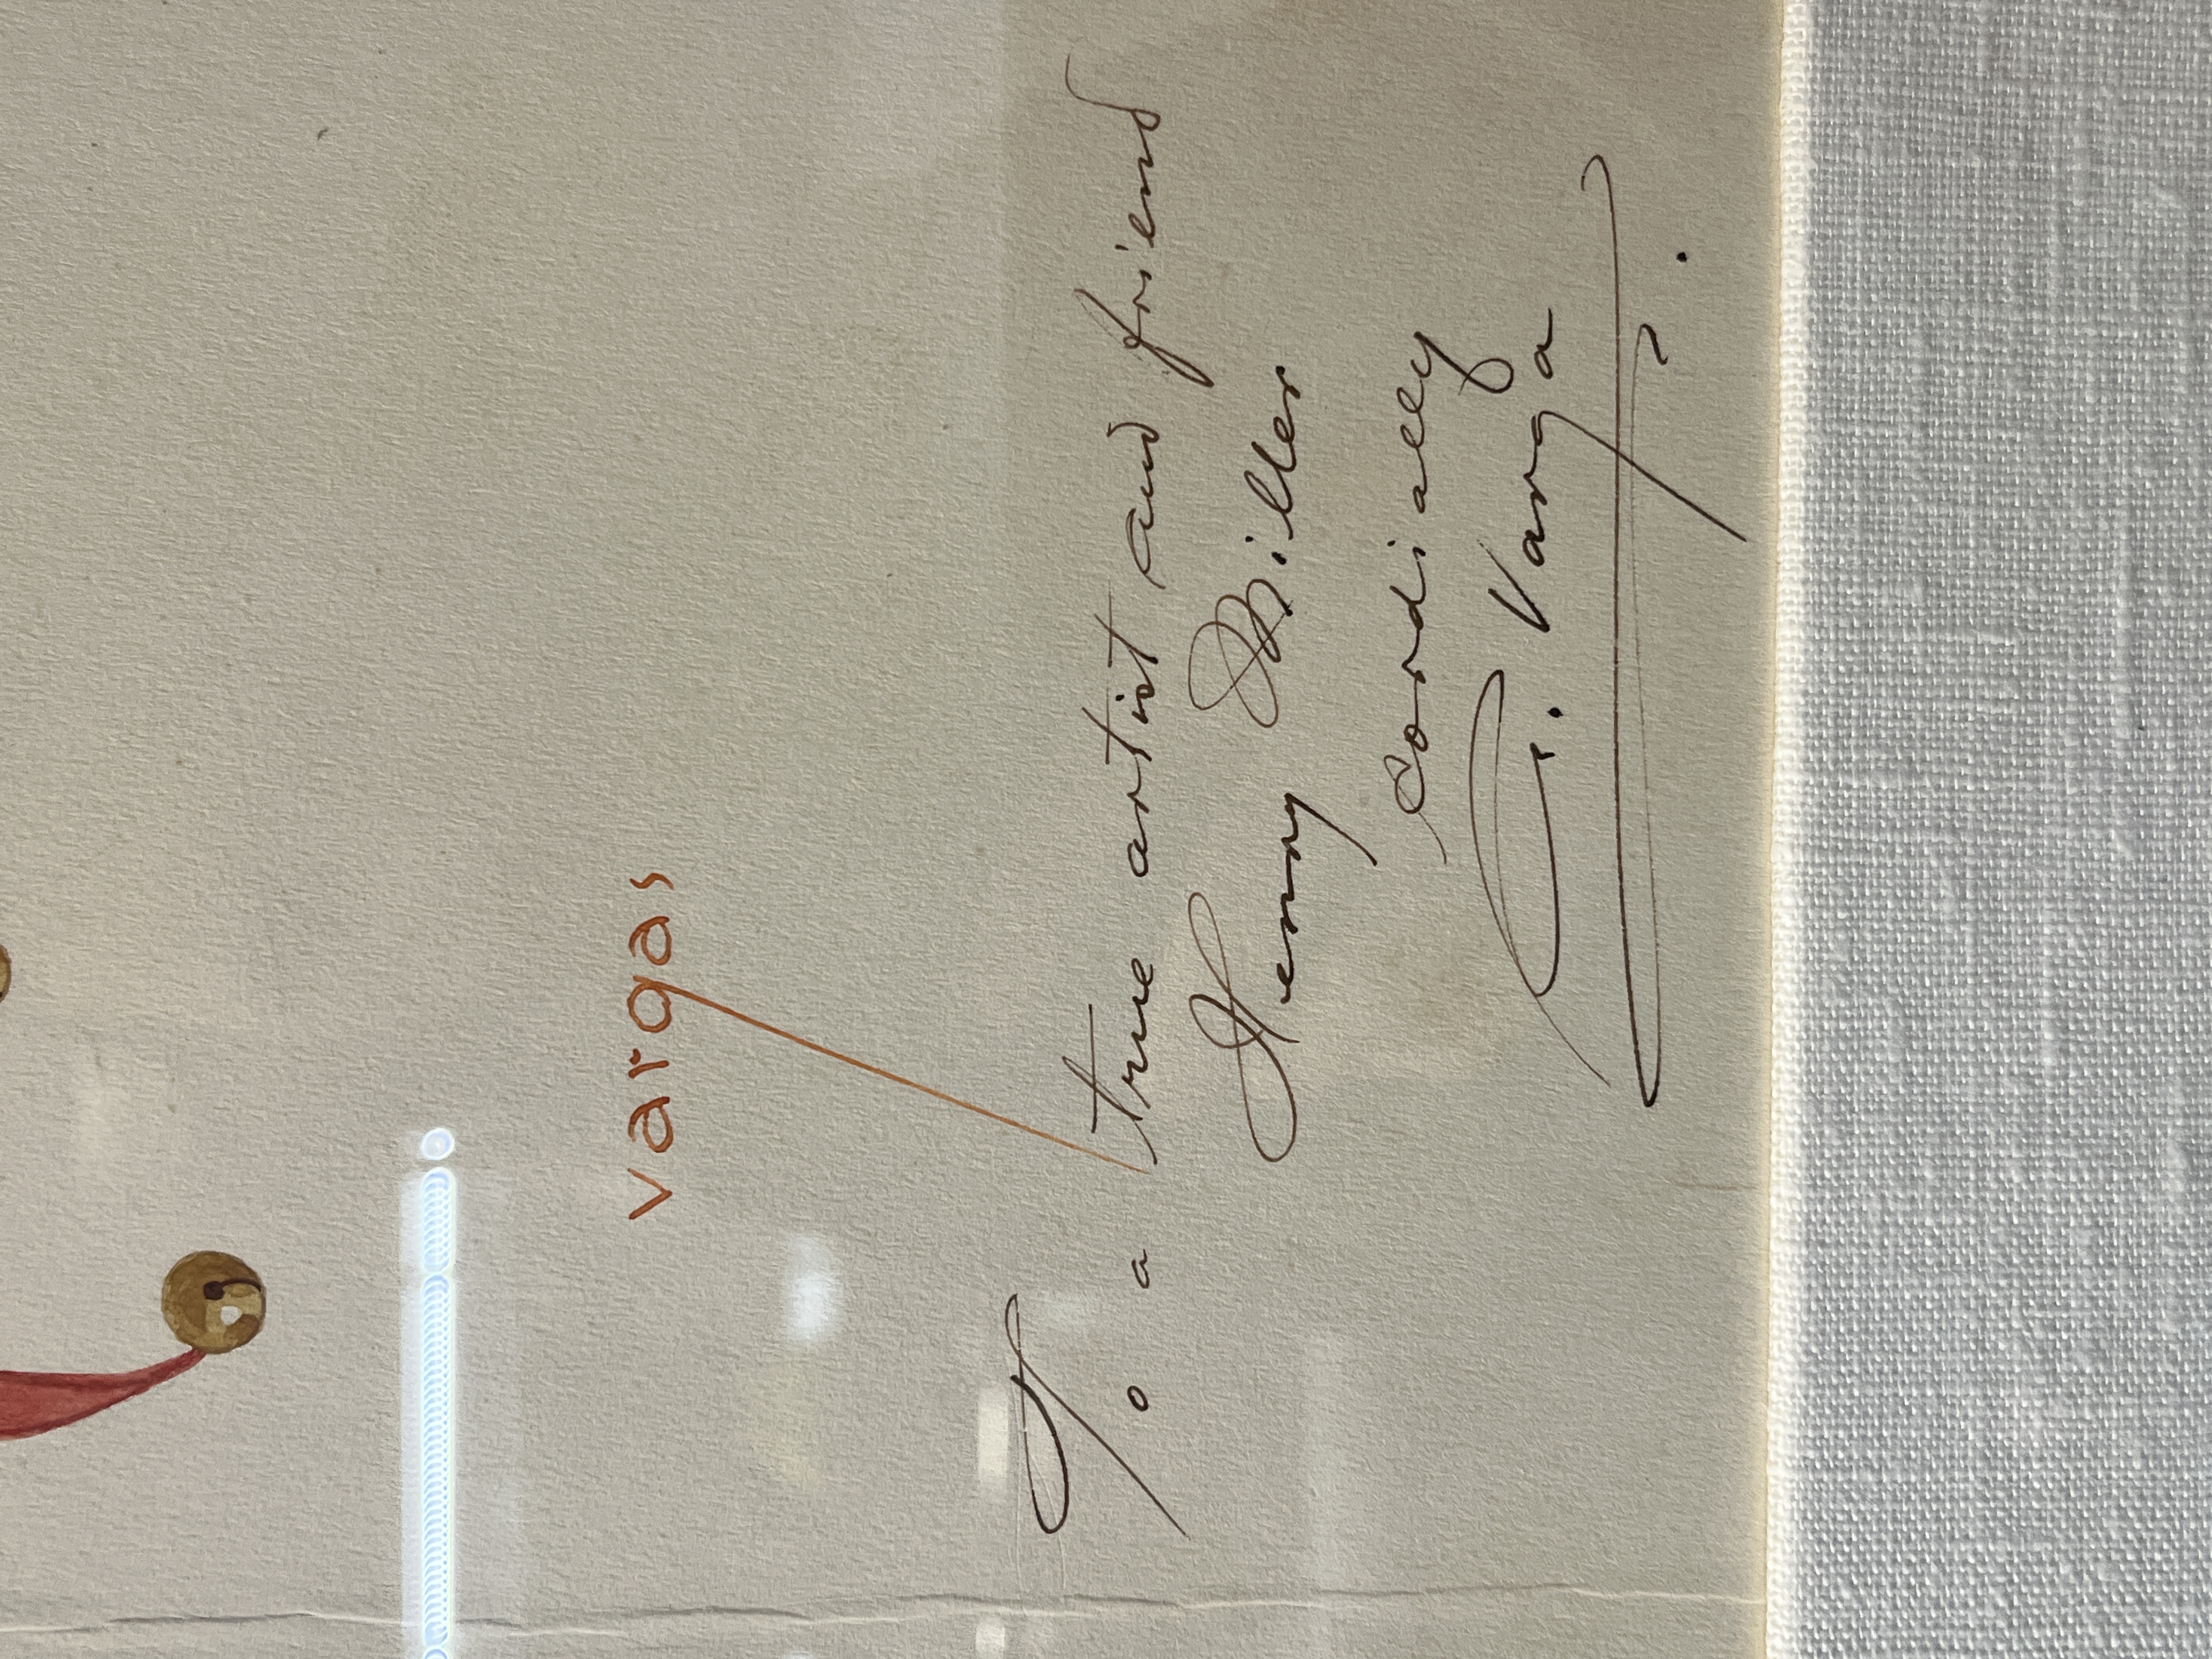 vargas
To a true artist and friend
Henry Miller
Cordially
Varga